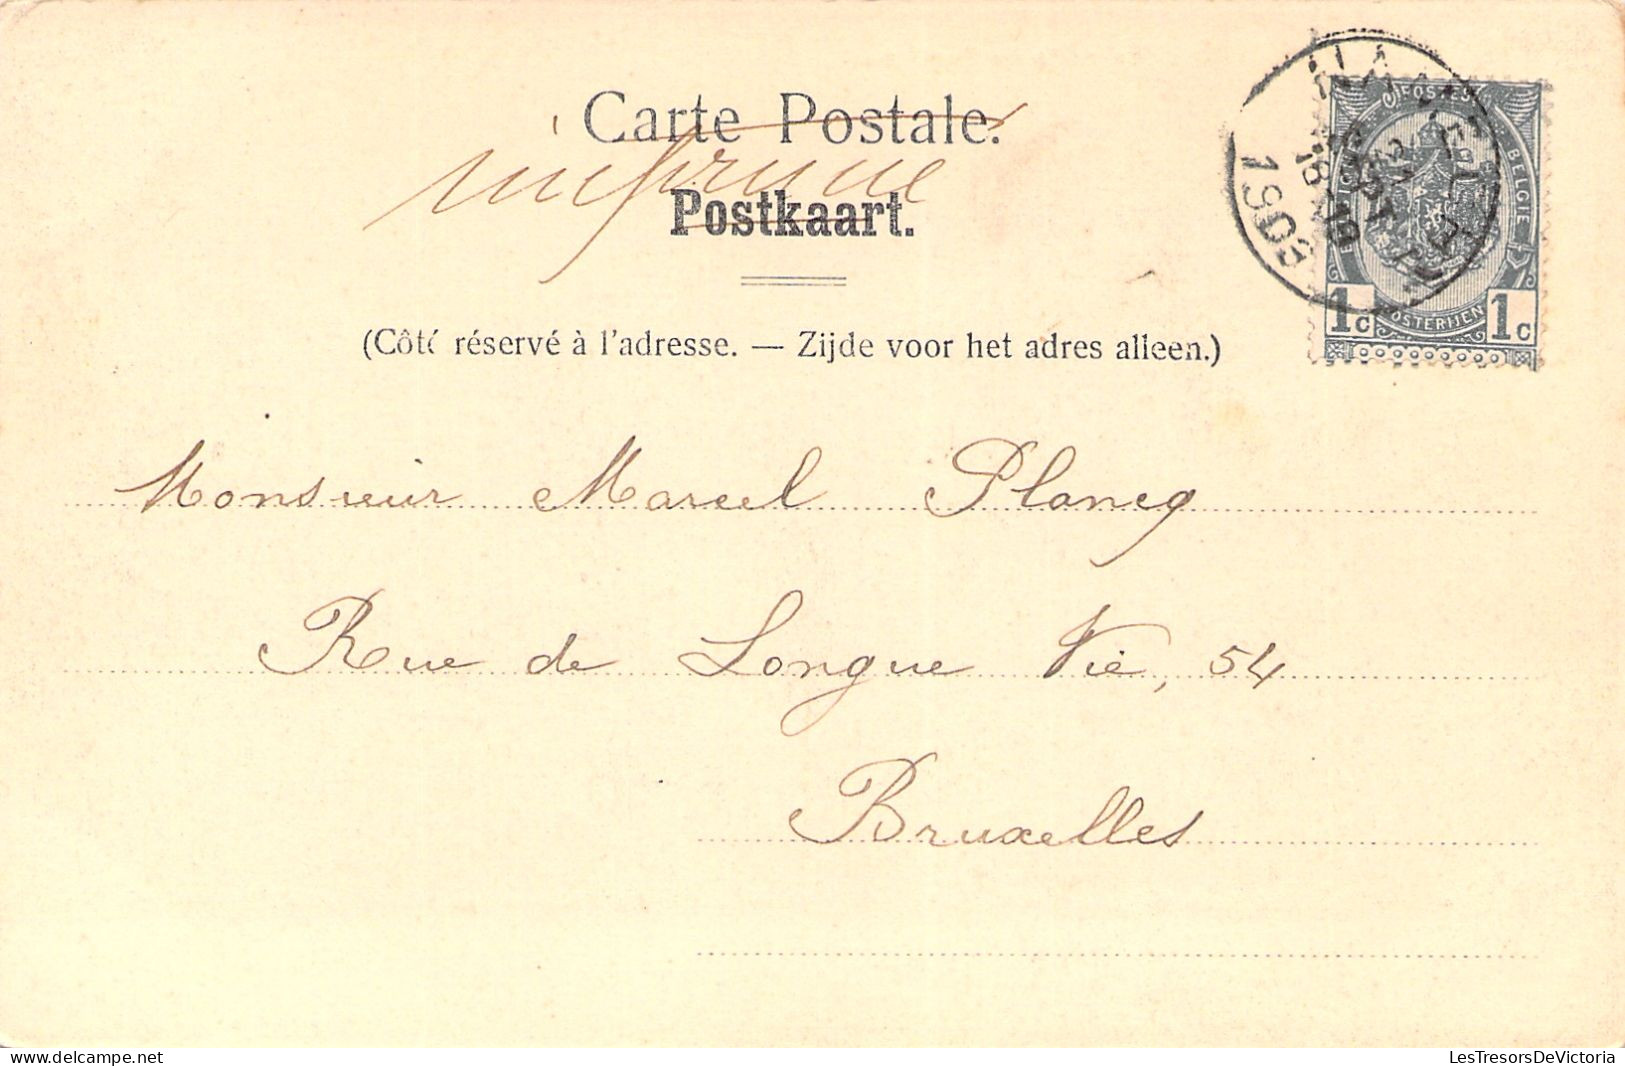 Carte Postale.
imprimé
Postkaart.
(Côté réservé à l'adresse. — Zijde voor het adres alleen.)
POSTES
BELGIQUE
BELGIE
POSTERIJEN
1c 1c
1902
Monsieur Marcel Plancq
Rue de Longue Vie, 54
Bruxelles
LesTresorsDeVictoria